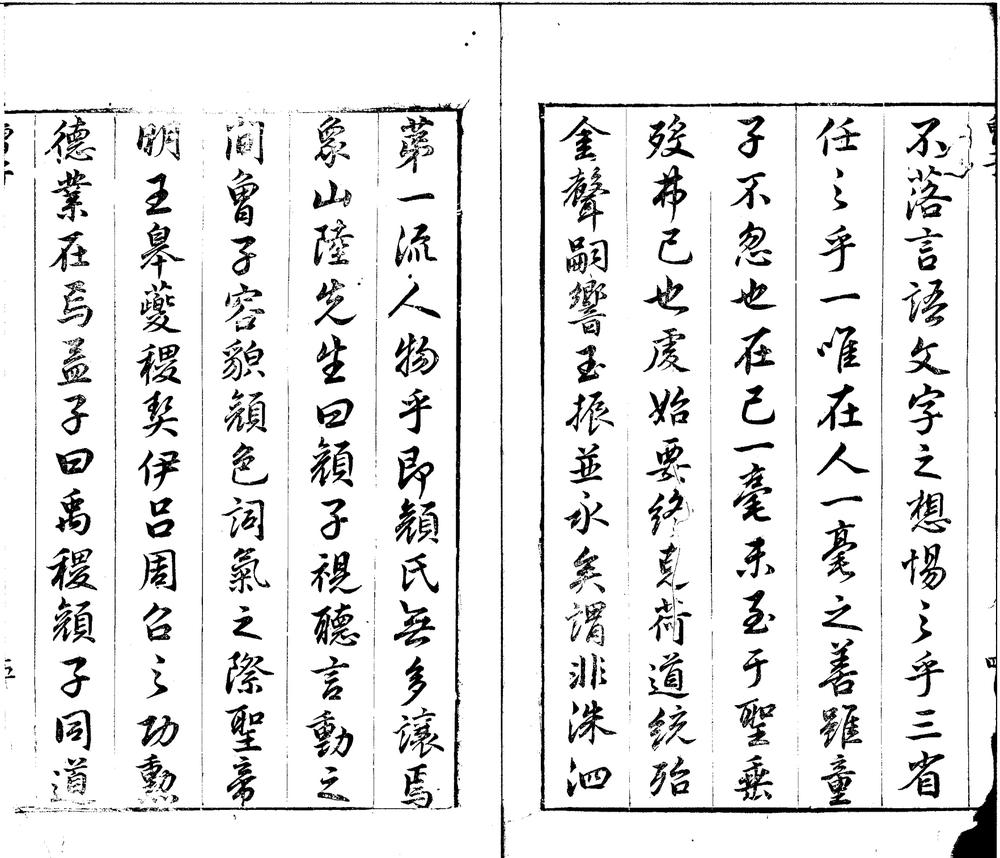 不落言語文字之想惕之乎三省
任之乎一唯在人一毫之善雖童
子不忽也在己一毫未至于聖垂
歿弗已也虔始要終克荷道統殆
金聲嗣響玉振並永矣謂非洙泗
第一流人物乎即顏氏無多讓焉
象山陸先生曰顏子視聽言動之
間曾子容貌顏色詞氣之際聖帝
明王皋夔稷契伊呂周召之功勲
德業在焉蓋子曰禹稷顏子同道